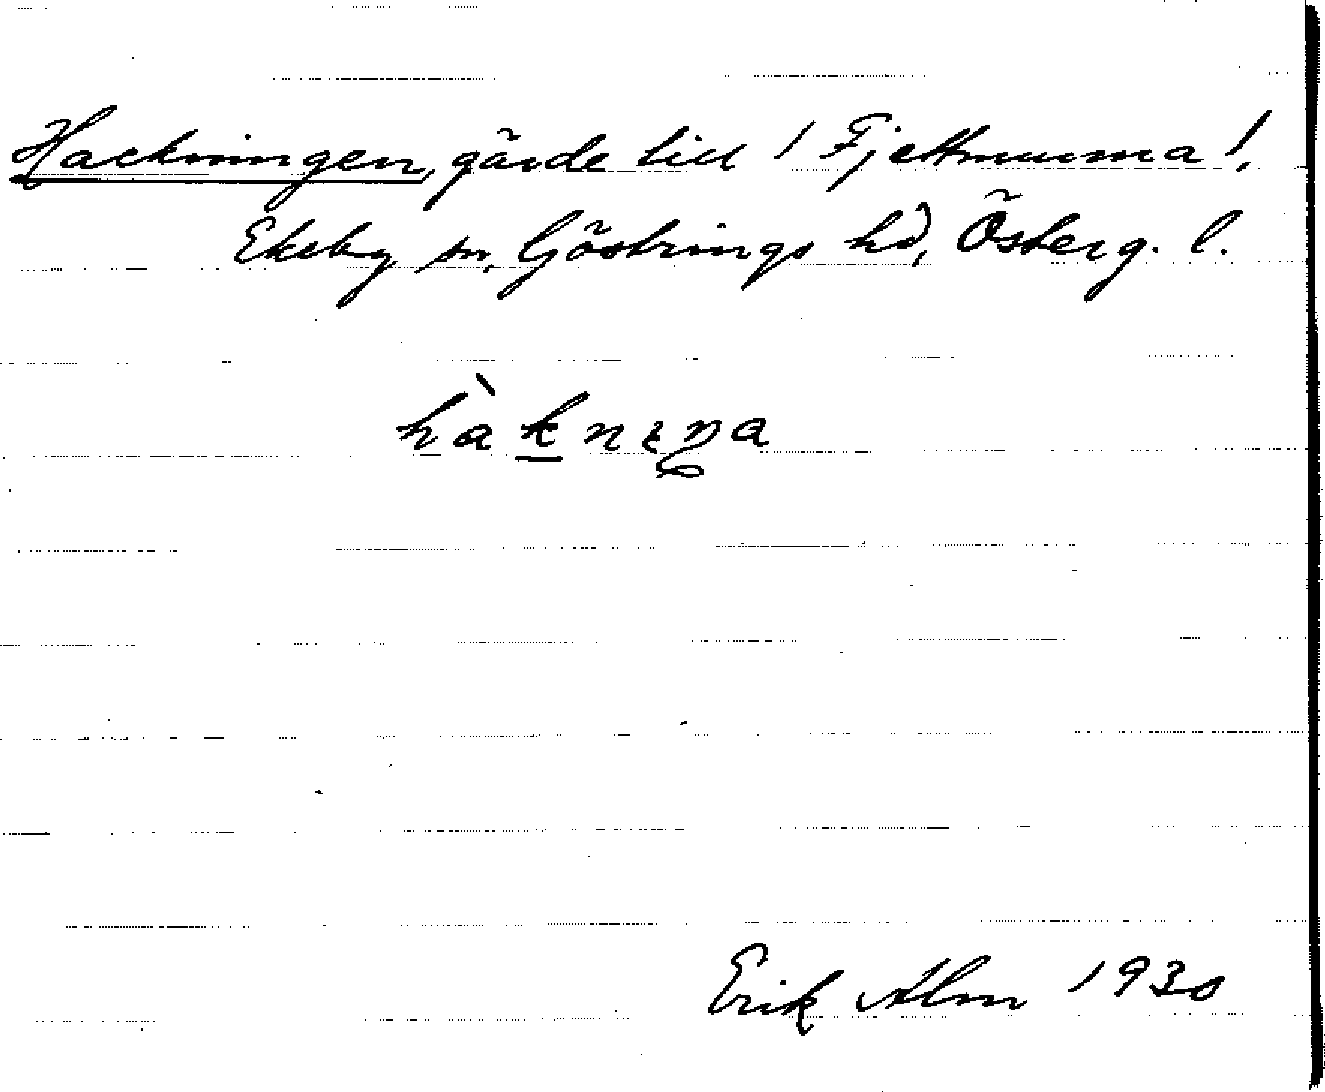 Hackningen, gärde till / Fjettmunna /,
Ekeby sn, Göstrings hd, Österg. l.
hàknıŋa
Erik Alm 1930